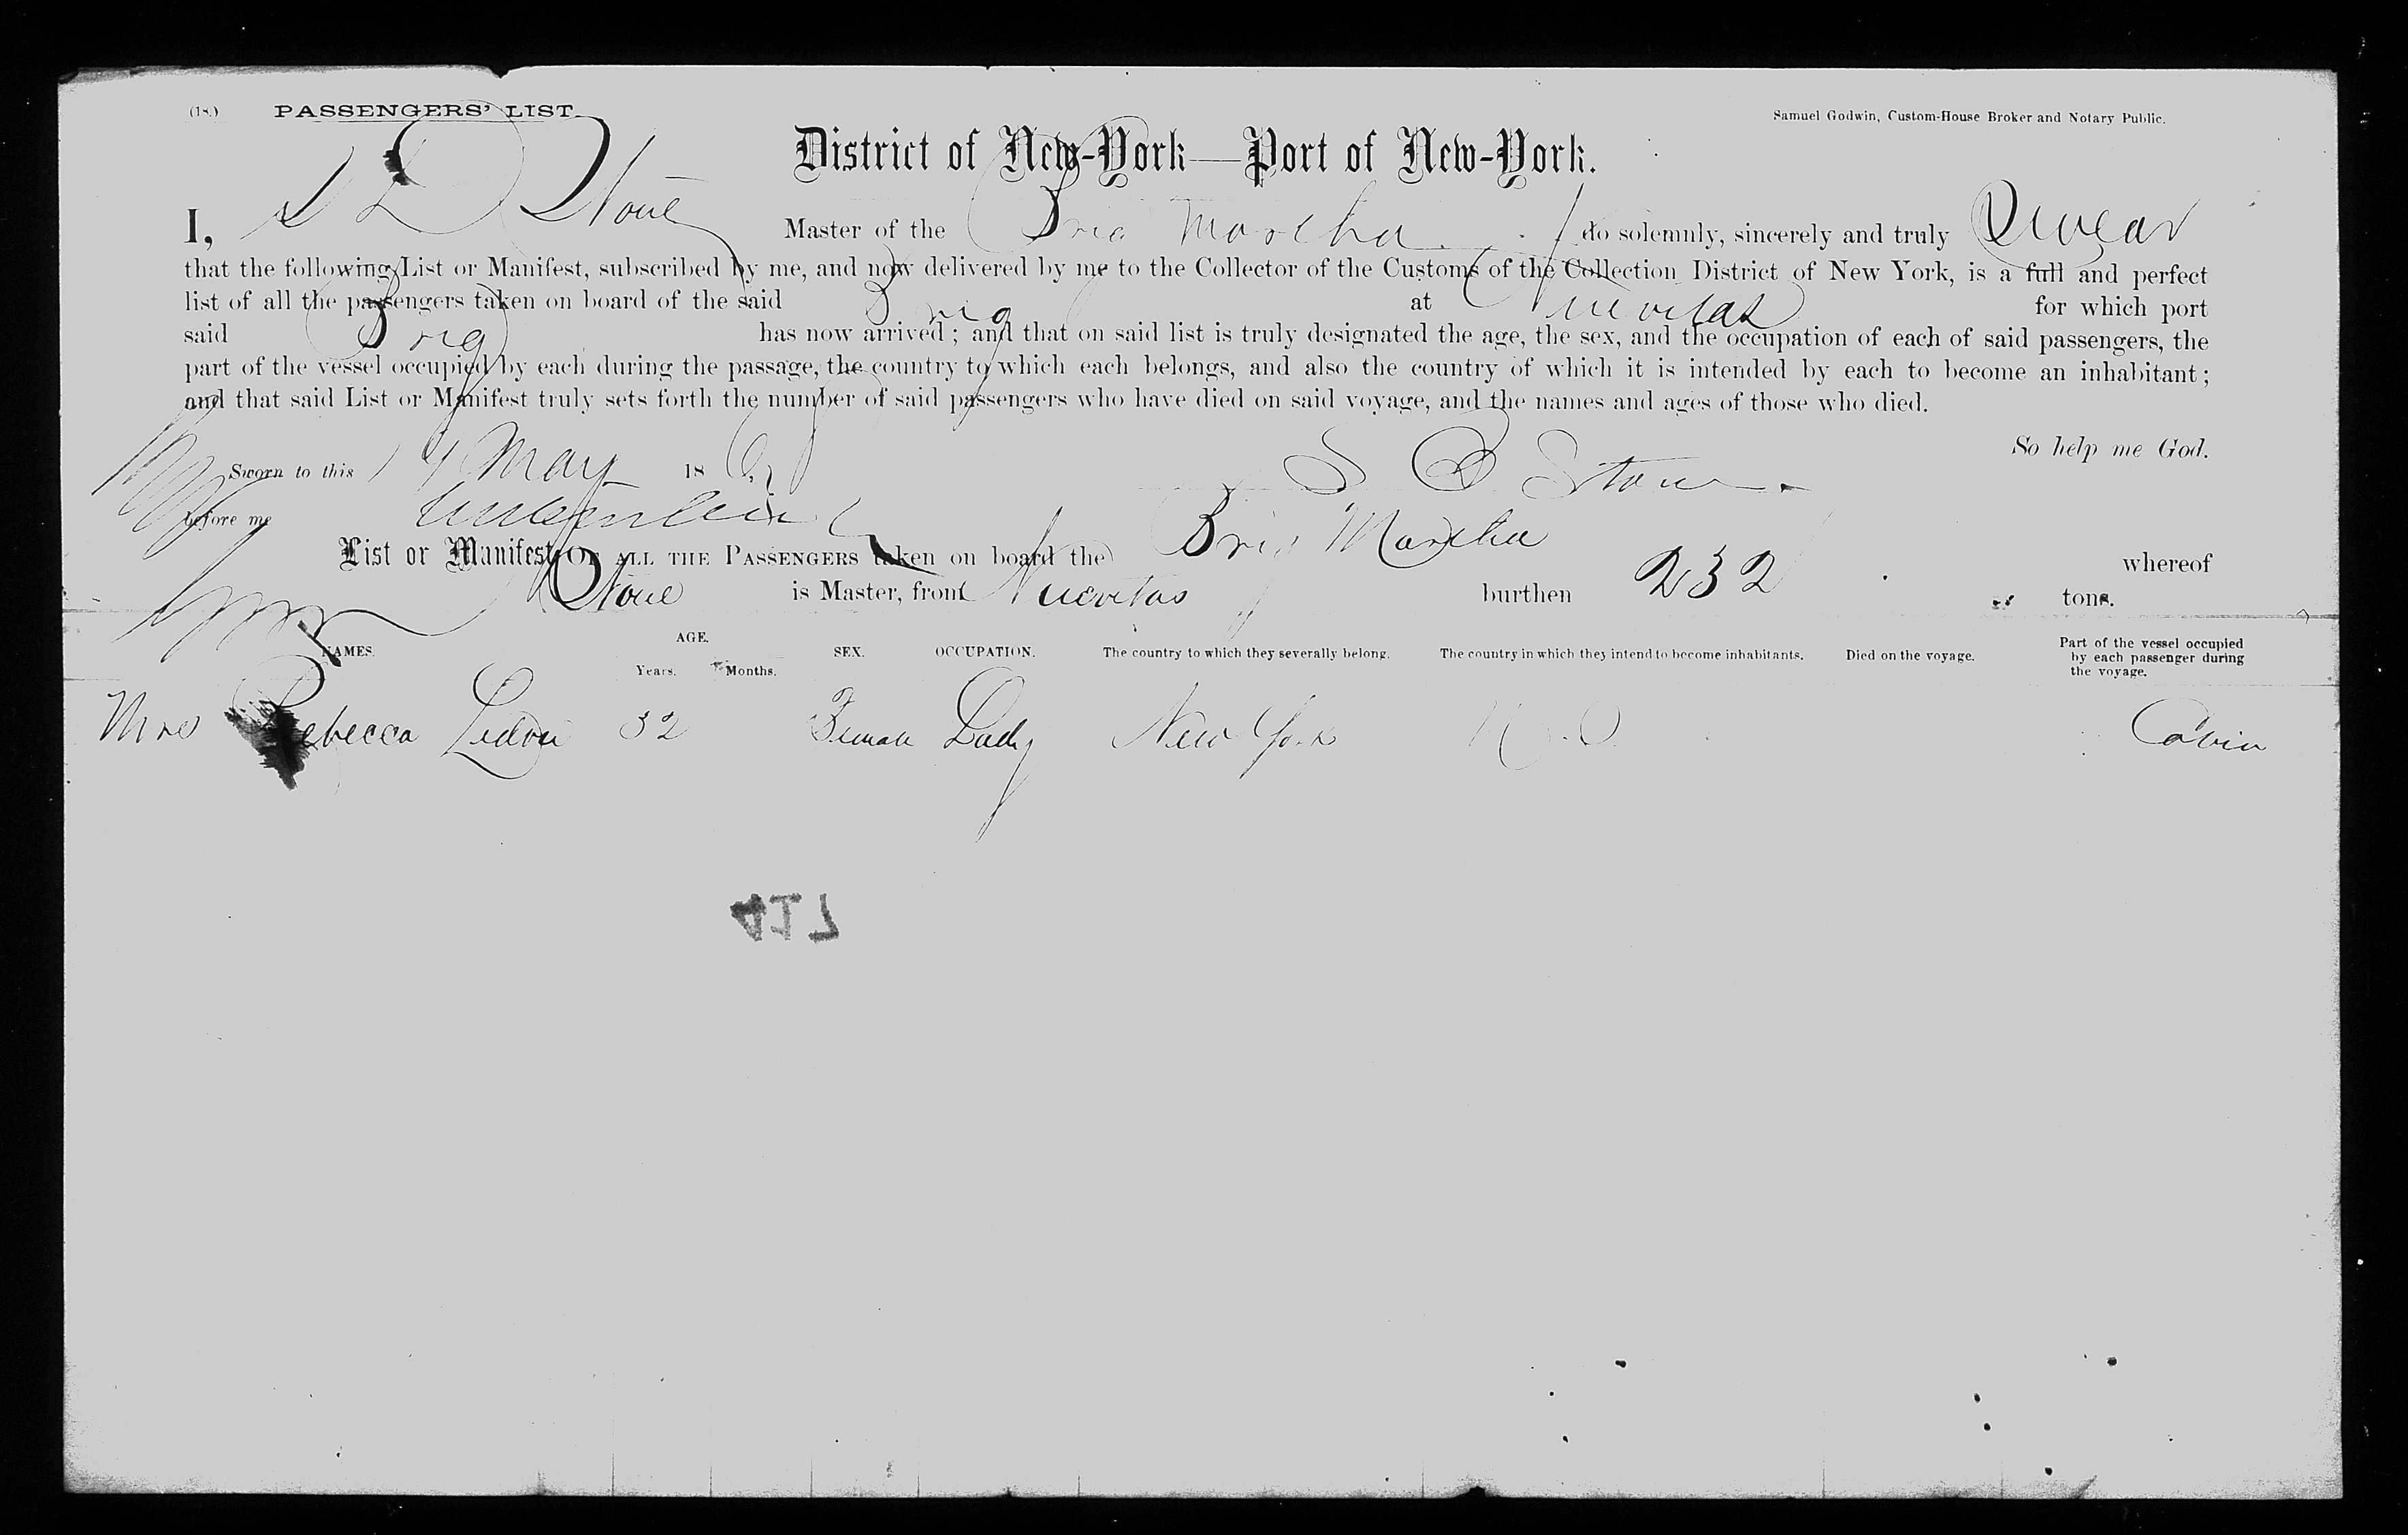 (18.) PASSENGERS' LIST.
Samuel Godwin, Custom-House Broker and Notary Public.
District of New-York—Port of New-York.
I, Stone Master of the Brig Martha do solemnly, sincerely and truly Swear
that the following List or Manifest, subscribed by me, and now delivered by me to the Collector of the Customs of the Collection District of New York, is a full and perfect
list of all the passengers taken on board of the said Brig at Nuevitas for which port
said Brig has now arrived; and that on said list is truly designated the age, the sex, and the occupation of each of said passengers, the
part of the vessel occupied by each during the passage, the country to which each belongs, and also the country of which it is intended by each to become an inhabitant;
and that said List or Manifest truly sets forth the number of said passengers who have died on said voyage, and the names and ages of those who died.
So help me God.
Sworn to this May 186 Stone
before me
List or Manifest OF ALL THE PASSENGERS taken on board the Brig Martha whereof
Stone is Master, from Nuevitas burthen 232 tons.
NAMES. AGE. Years. Months. SEX. OCCUPATION. The country to which they severally belong. The country in which they intend to become inhabitants. Died on the voyage. Part of the vessel occupied by each passenger during the voyage.
Mrs Rebecca 32 Female Lady New York Cabin
417